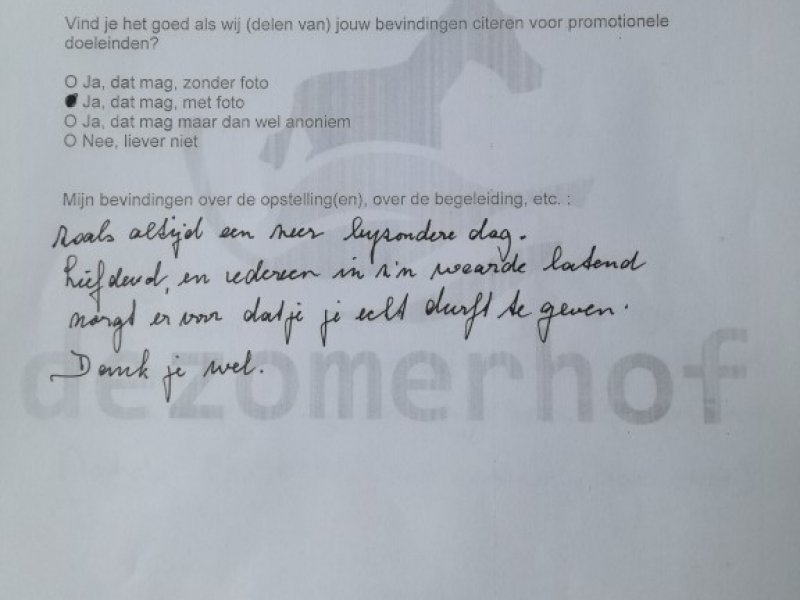 Vind je het goed als wij (delen van) jouw bevindingen citeren voor promotionele
doeleinden?
O Ja, dat mag, zonder foto
Ja, dat mag, met foto
O Ja, dat mag maar dan wel anoniem
O Nee, liever niet
Mijn bevindingen over de opstelling(en), over de begeleiding, etc. :
Zoals altijd een zeer byzondere dag.
Liefdevol, en iedereen in z'n waarde latend
zorgt er voor dat je je echt durft te geven.
Dank je wel.
dezomerhof